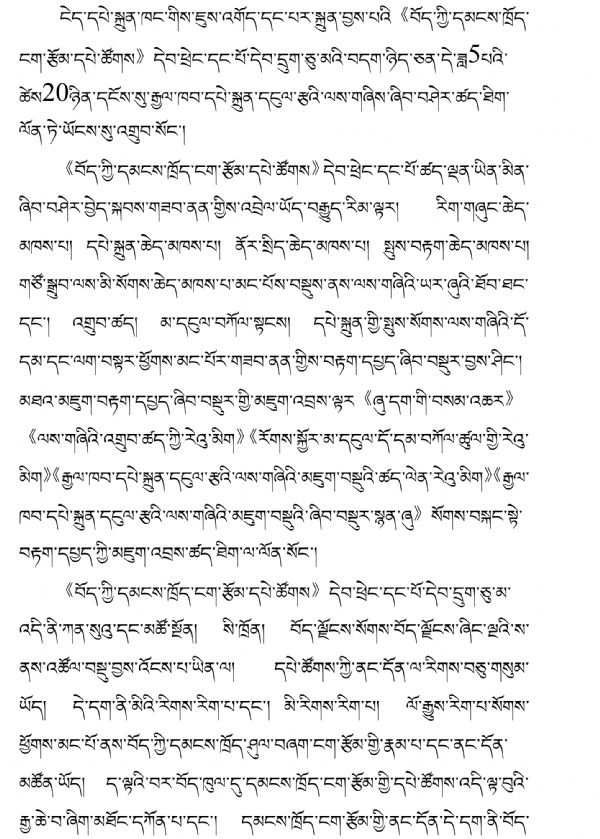 ངེད་དཔེ་སྐྲུན་ཁང་གིས་ཇུས་འགོད་དང་པར་སྐྲུན་བྱས་པའི 《བོད་ཀྱི་དམངས་ཁྲོད་
ངག་རྩོམ་དཔེ་ཚོགས》 དེབ་ཕྲེང་དང་པོ་དེབ་དྲུག་ཅུ་མའི་བདག་ཉིད་ཅན་དེ་ཟླ5པའི་
ཚེས20ཉིན་དངོས་སུ་རྒྱལ་ཁབ་དཔེ་སྐྲུན་དངུལ་རྩའི་ལས་གཞིས་ཞིབ་བཤེར་ཚད་ཐིག་
ལོན་ཏེ་ཡོངས་སུ་འགྲུབ་སོང་།
《བོད་ཀྱི་དམངས་ཁྲོད་ངག་རྩོམ་དཔེ་ཚོགས》 དེབ་ཕྲེང་དང་པོ་ཚད་ལྡན་ཡིན་མིན་
ཞིབ་བཤེར་བྱེད་སྐབས་གཟབ་ནན་གྱིས་འབྲེལ་ཡོད་བརྒྱུད་རིམ་ལྟར། རིག་གཞུང་ཆེད་
མཁས་པ། དཔེ་སྐྲུན་ཆེད་མཁས་པ། ནོར་སྲིད་ཆེད་མཁས་པ། སྤུས་བརྟག་ཆེད་མཁས་པ།
གཙོ་སྒྲུབ་ལས་མི་སོགས་ཆེད་མཁས་པ་མང་པོས་བསྡུས་ནས་ལས་གཞིའི་ཡར་ཞུའི་ཐོབ་ཐང་
དང་། འགྲུབ་ཚད། མ་དངུལ་བཀོལ་སྟངས། དཔེ་སྐྲུན་གྱི་སྤུས་སོགས་ལས་གཞིའི་དོ་
དམ་དང་ལག་བསྟར་ཕྱོགས་མང་པོར་གཟབ་ནན་གྱིས་བརྟག་དཔྱད་ཞིབ་བསྡུར་བྱས་ཤིང་།
མཐའ་མཇུག་བརྟག་དཔྱད་ཞིབ་བསྡུར་གྱི་མཇུག་འབྲས་ལྟར 《ཞུ་དག་གི་བསམ་འཆར》
《ལས་གཞིའི་འགྲུབ་ཚད་ཀྱི་རེའུ་མིག》《རོགས་སྐྱོར་མ་དངུལ་དོ་དམ་བཀོལ་ཚུལ་གྱི་རེའུ་
མིག》《རྒྱལ་ཁབ་དཔེ་སྐྲུན་དངུལ་རྩའི་ལས་གཞིའི་མཇུག་བསྡུའི་ཚད་ལེན་རེའུ་མིག》《རྒྱལ་
ཁབ་དཔེ་སྐྲུན་དངུལ་རྩའི་ལས་གཞིའི་མཇུག་བསྡུའི་ཞིབ་བསྡུར་སྙན་ཞུ》 སོགས་བསྐང་སྟེ་
བརྟག་དཔྱད་ཀྱི་མཇུག་འབྲས་ཚད་ཐིག་ལ་ལོན་སོང་།
《བོད་ཀྱི་དམངས་ཁྲོད་ངག་རྩོམ་དཔེ་ཚོགས》 དེབ་ཕྲེང་དང་པོ་དེབ་དྲུག་ཅུ་མ་
འདི་ནི་ཀན་སུའུ་དང་མཚོ་སྔོན། སི་ཁྲོན། བོད་ལྗོངས་སོགས་བོད་ལྗོངས་ཞིང་ལྔའི་ས་
ནས་འཚོལ་བསྡུ་བྱས་འོངས་པ་ཡིན་ལ། དཔེ་ཚོགས་ཀྱི་ནང་དོན་ལ་རིགས་བཅུ་གསུམ་
ཡོད། དེ་དག་ནི་མིའི་རིགས་རིག་པ་དང་། མི་རིགས་རིག་པ། ལོ་རྒྱུས་རིག་པ་སོགས་
ཕྱོགས་མང་པོ་ནས་བོད་ཀྱི་དམངས་ཁྲོད་ཤུལ་བཞག་ངག་རྩོམ་གྱི་རྣམ་པ་དང་ནང་དོན་
མཚོན་ཡོད། ད་ལྟའི་བར་བོད་ཁུལ་དུ་དམངས་ཁྲོད་ངག་རྩོམ་གྱི་དཔེ་ཚོགས་འདི་ལྟ་བུའི་
རྒྱ་ཆེ་བ་ཞིག་མཐོང་དཀོན་པ་དང་། དམངས་ཁྲོད་རྩོམ་གྱི་ནང་དོན་དེ་དག་ནི་བོད་